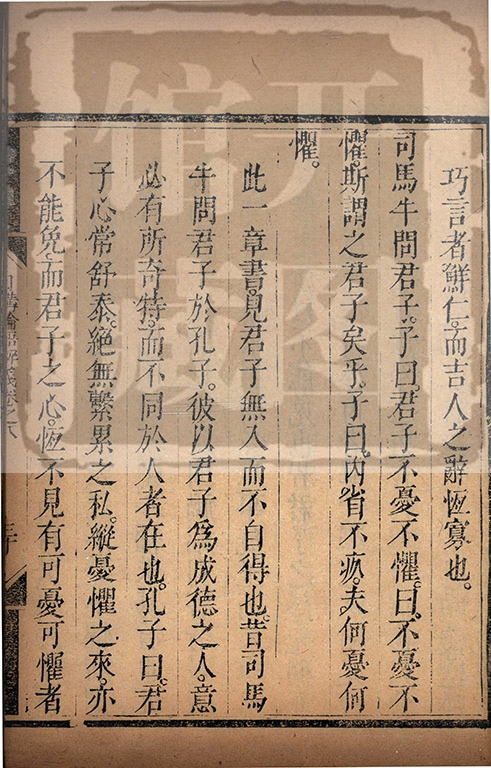 巧言者鮮仁。而吉人之辭恆寡也。
司馬牛問君子。子曰。君子不憂不懼。曰。不憂不
懼。斯謂之君子矣乎。子曰。內省不疚。夫何憂何
懼。
此一章書。見君子無入而不自得也。昔司馬
牛問君子於孔子。彼以君子爲成德之人。意
必有所奇特。而不同於人者在也。孔子曰。君
子心常舒泰。絕無繫累之私。縱憂懼之來。亦
不能免。而君子之心。恆不見有可憂可懼者